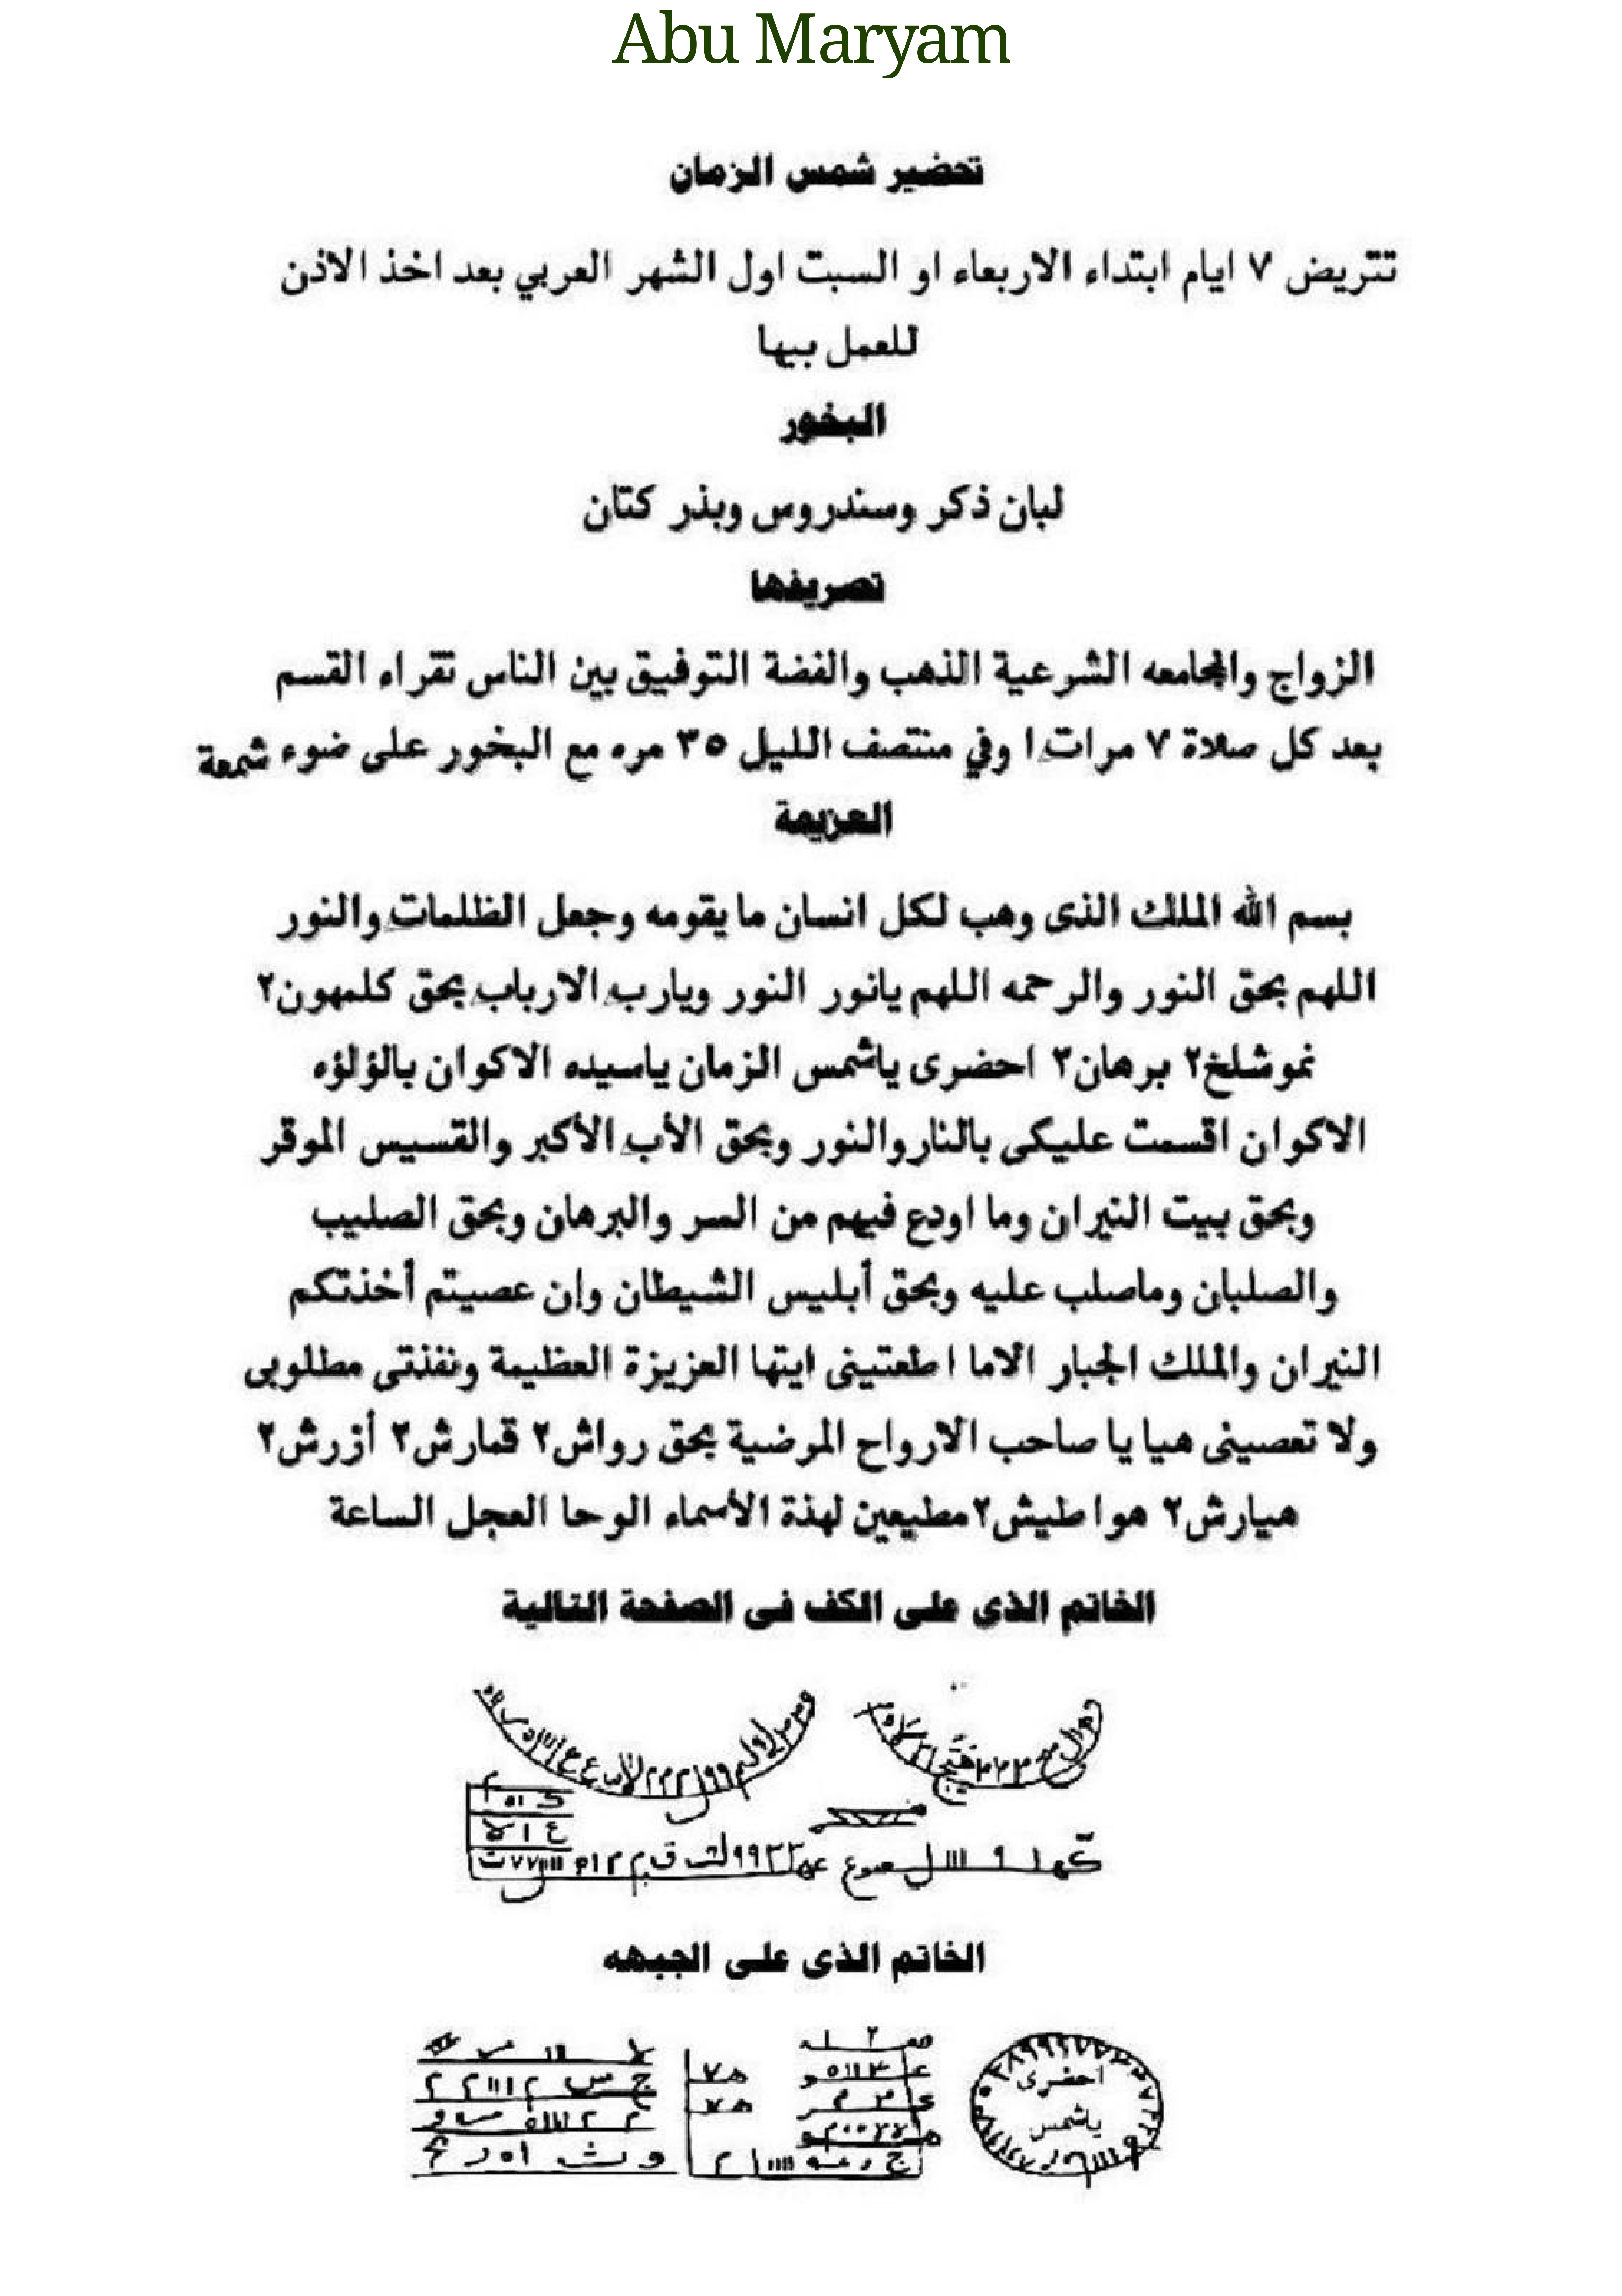 Abu Maryam
تحضير شمس الزمان
تتريض ٧ ايام ابتداء الاربعاء او السبت اول الشهر العربي بعد اخذ الاذن
للعمل بيها
البخور
لبان ذكر وسندروس وبذر كتان
تصريفها
الزواج والمجامعه الشرعية الذهب والفضة التوفيق بين الناس تقراء القسم
بعد كل صلاة ٧ مرات ا وفي منتصف الليل ٣٥ مره مع البخور على ضوء شمعة
العزيمة
بسم الله الملك الذى وهب لكل انسان ما يقومه وجعل الظلمات والنور
اللهم بحق النور والرحمه اللهم يانور النور ويارب الارباب بحق كلمهون٢
نموشلخ٢ برهان٢ احضرى ياشمس الزمان ياسيده الاكوان بالؤلؤه
الاكوان اقسمت عليكى بالنار والنور وبحق الأب الأكبر والقسيس الموقر
وبحق بيت النيران وما اودع فيهم من السر والبرهان وبحق الصليب
والصلبان وماصلب عليه وبحق أبليس الشيطان وإن عصيتم أخذتكم
النيران والملك الجبار الاما اطعتينى ايتها العزيزة العظيمة ونفذتى مطلوبى
ولا تعصينى هيا يا صاحب الارواح المرضية بحق رواش٢ قمارش٢ أزرش٢
هيارش٢ هواطيش٢ مطيعين لهذة الأسماء الوحا العجل الساعة
الخاتم الذى على الكف فى الصفحة التالية
الخاتم الذى على الجبهه
احضرى
ياشمس